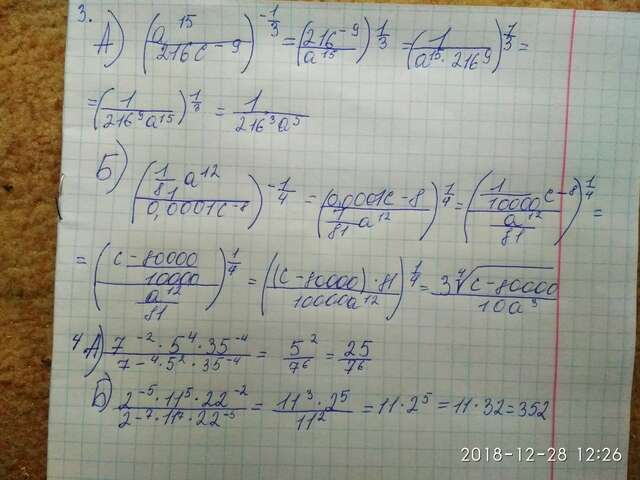 3. А) (a^15/216c^-9)^-1/3 = (216^-9/a^15)^1/3 = (1/a^15·216^9)^1/3 =
= (1/216^9a^15)^1/3 = 1/216^3a^5
Б) (1/81 a^12/0,0001c^-8)^-1/4 = (0,0001c-8/1/81 a^12)^1/4 = (1/10000 c-8/a^12/81)^1/4 =
= (c-80000/10000/a^12/81)^1/4 = ((c-80000)·81/10000a^12)^1/4 = 3∜c-80000/10a^3
4. А) 7^-2·5^4·35^-4/7^-4·5^2·35^-4 = 5^2/7^6 = 25/7^6
Б) 2^-5·11^5·22^-2/2^-7·11^7·22^-5 = 11^3·2^5/11^2 = 11·2^5 = 11·32 = 352
2018-12-28 12:26